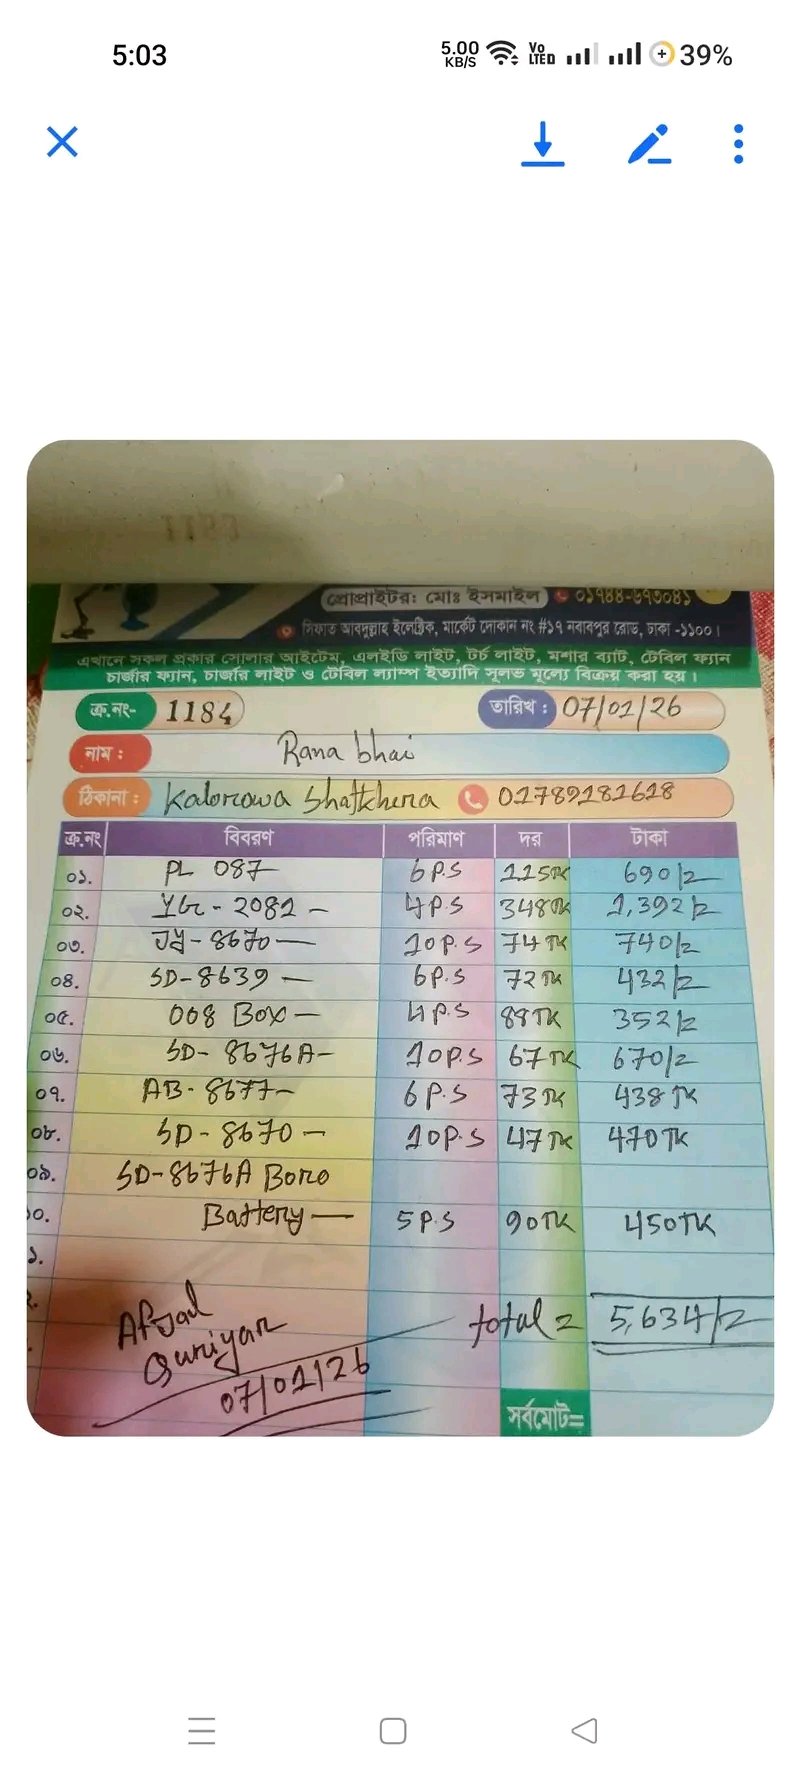 5:03 5.00 KB/S Vo LTED 39%
প্রোপ্রাইটর: মোঃ ইসমাইল ০১৭৪৪-৬৭৩০৪১
সিফাত আবদুল্লাহ ইলেক্ট্রিক, মার্কেট দোকান নং #১৭ নবাবপুর রোড, ঢাকা -১১০০।
এখানে সকল প্রকার সোলার আইটেম, এলইডি লাইট, টর্চ লাইট, মশার ব্যাট, টেবিল ফ্যান
চার্জার ফ্যান, চার্জার লাইট ও টেবিল ল্যাম্প ইত্যাদি সুলভ মূল্যে বিক্রয় করা হয়।
ক্র.নং- 1184 তারিখ : 07/01/26
নাম : Rana bhai
ঠিকানা : Kalorowa Shatkhira 01789181618
ক্র.নং বিবরণ পরিমাণ দর টাকা
০১. PL 087 6P.S 115TK 690/=
০২. - 2081 - 4P.S 348TK 1,392/=
০৩. JY-8670 — 10P.S 74TK 740/=
০৪. SD-8639 — 6P.S 72TK 432/=
০৫. 008 Box — 4P.S 88TK 352/=
০৬. SD- 8676A- 10P.S 67TK 670/=
০৭. AB-8677- 6P.S 73TK 438TK
০৮. SD-8670 - 10P.S 47TK 470TK
০৯. SD-8676A Boro
১০. Battery — 5P.S 90TK 450TK
১.
২.
total = 5,634/=
Afjal
07/01/26
সর্বমোট=